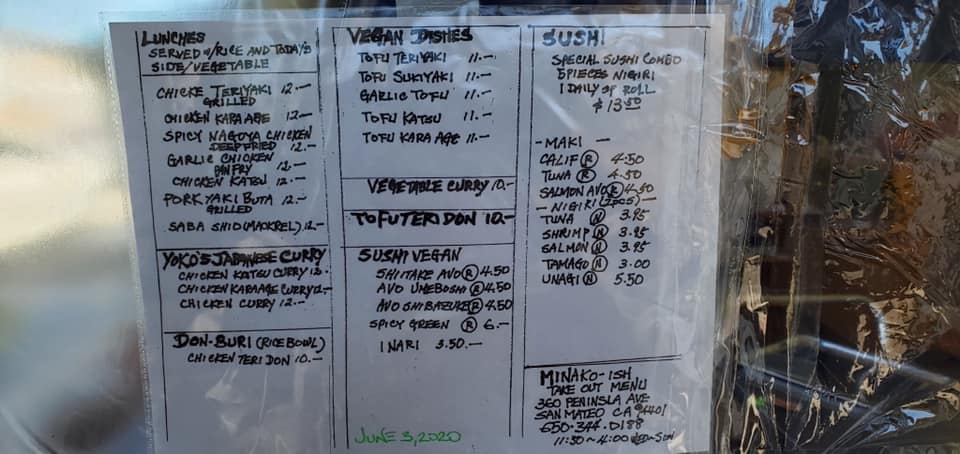 LUNCHES
SERVED W/RICE AND TODAY'S
SIDE/VEGETABLE
CHICKE TERIYAKI 12.—
GRILLED
CHICKEN KARAAGE 12—
SPICY NAGOYA CHICKEN
DEEP FRIED 12.—
GARLIC CHICKEN
PAN FRY 12.—
CHICKEN KATSU 12.—
PORK YAKI BUTA 12.—
GRILLED
SABA SHIO (MACKREL) 12.—
YOKO'S JAPANESE CURRY
CHICKEN KATSU CURRY 13.
CHICKEN KARAAGE CURRY 12.—
CHICKEN CURRY 12.—
DON-BURI (RICE BOWL)
CHICKEN TERI DON 10.—
VEGAN DISHES
TOFU TERIYAKI 11.—
TOFU SUKIYAKI 11.—
GARLIC TOFU 11.—
TOFU KATSU 11.—
TOFU KARA AGE 11.—
VEGETABLE CURRY 10.—
TOFU TERI DON 10.—
SUSHI VEGAN
SHIITAKE AVO Ⓡ 4.50
AVO UMEBOSHI Ⓡ 4.50
AVO SHIBAZUKE Ⓡ 4.50
SPICY GREEN Ⓡ 6.—
INARI 3.50.—
JUNE 3, 2020
SUSHI
SPECIAL SUSHI COMBO
5 PIECES NIGIRI
1 DAILY SP ROLL
$13.50
- MAKI —
CALIF Ⓡ 4.50
TUNA Ⓡ 4.50
SALMON AVO Ⓡ 4.50
— NIGIRI (2PCS) —
TUNA Ⓝ 3.95
SHRIMP Ⓝ 3.95
SALMON Ⓝ 3.95
TAMAGO Ⓝ 3.00
UNAGI Ⓝ 5.50
MINAKO-ISH
TAKE OUT MENU
360 PENINSLA AVE
SAN MATEO CA 94401
650.344.0188
11:30 ~ 4:00 WED-SUN